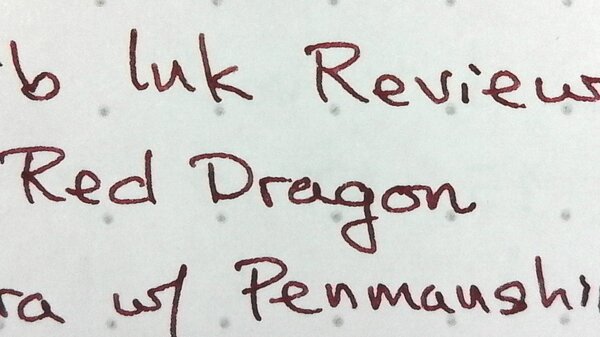 b Ink Reviews
Red Dragon
ra w/ Penmanshi